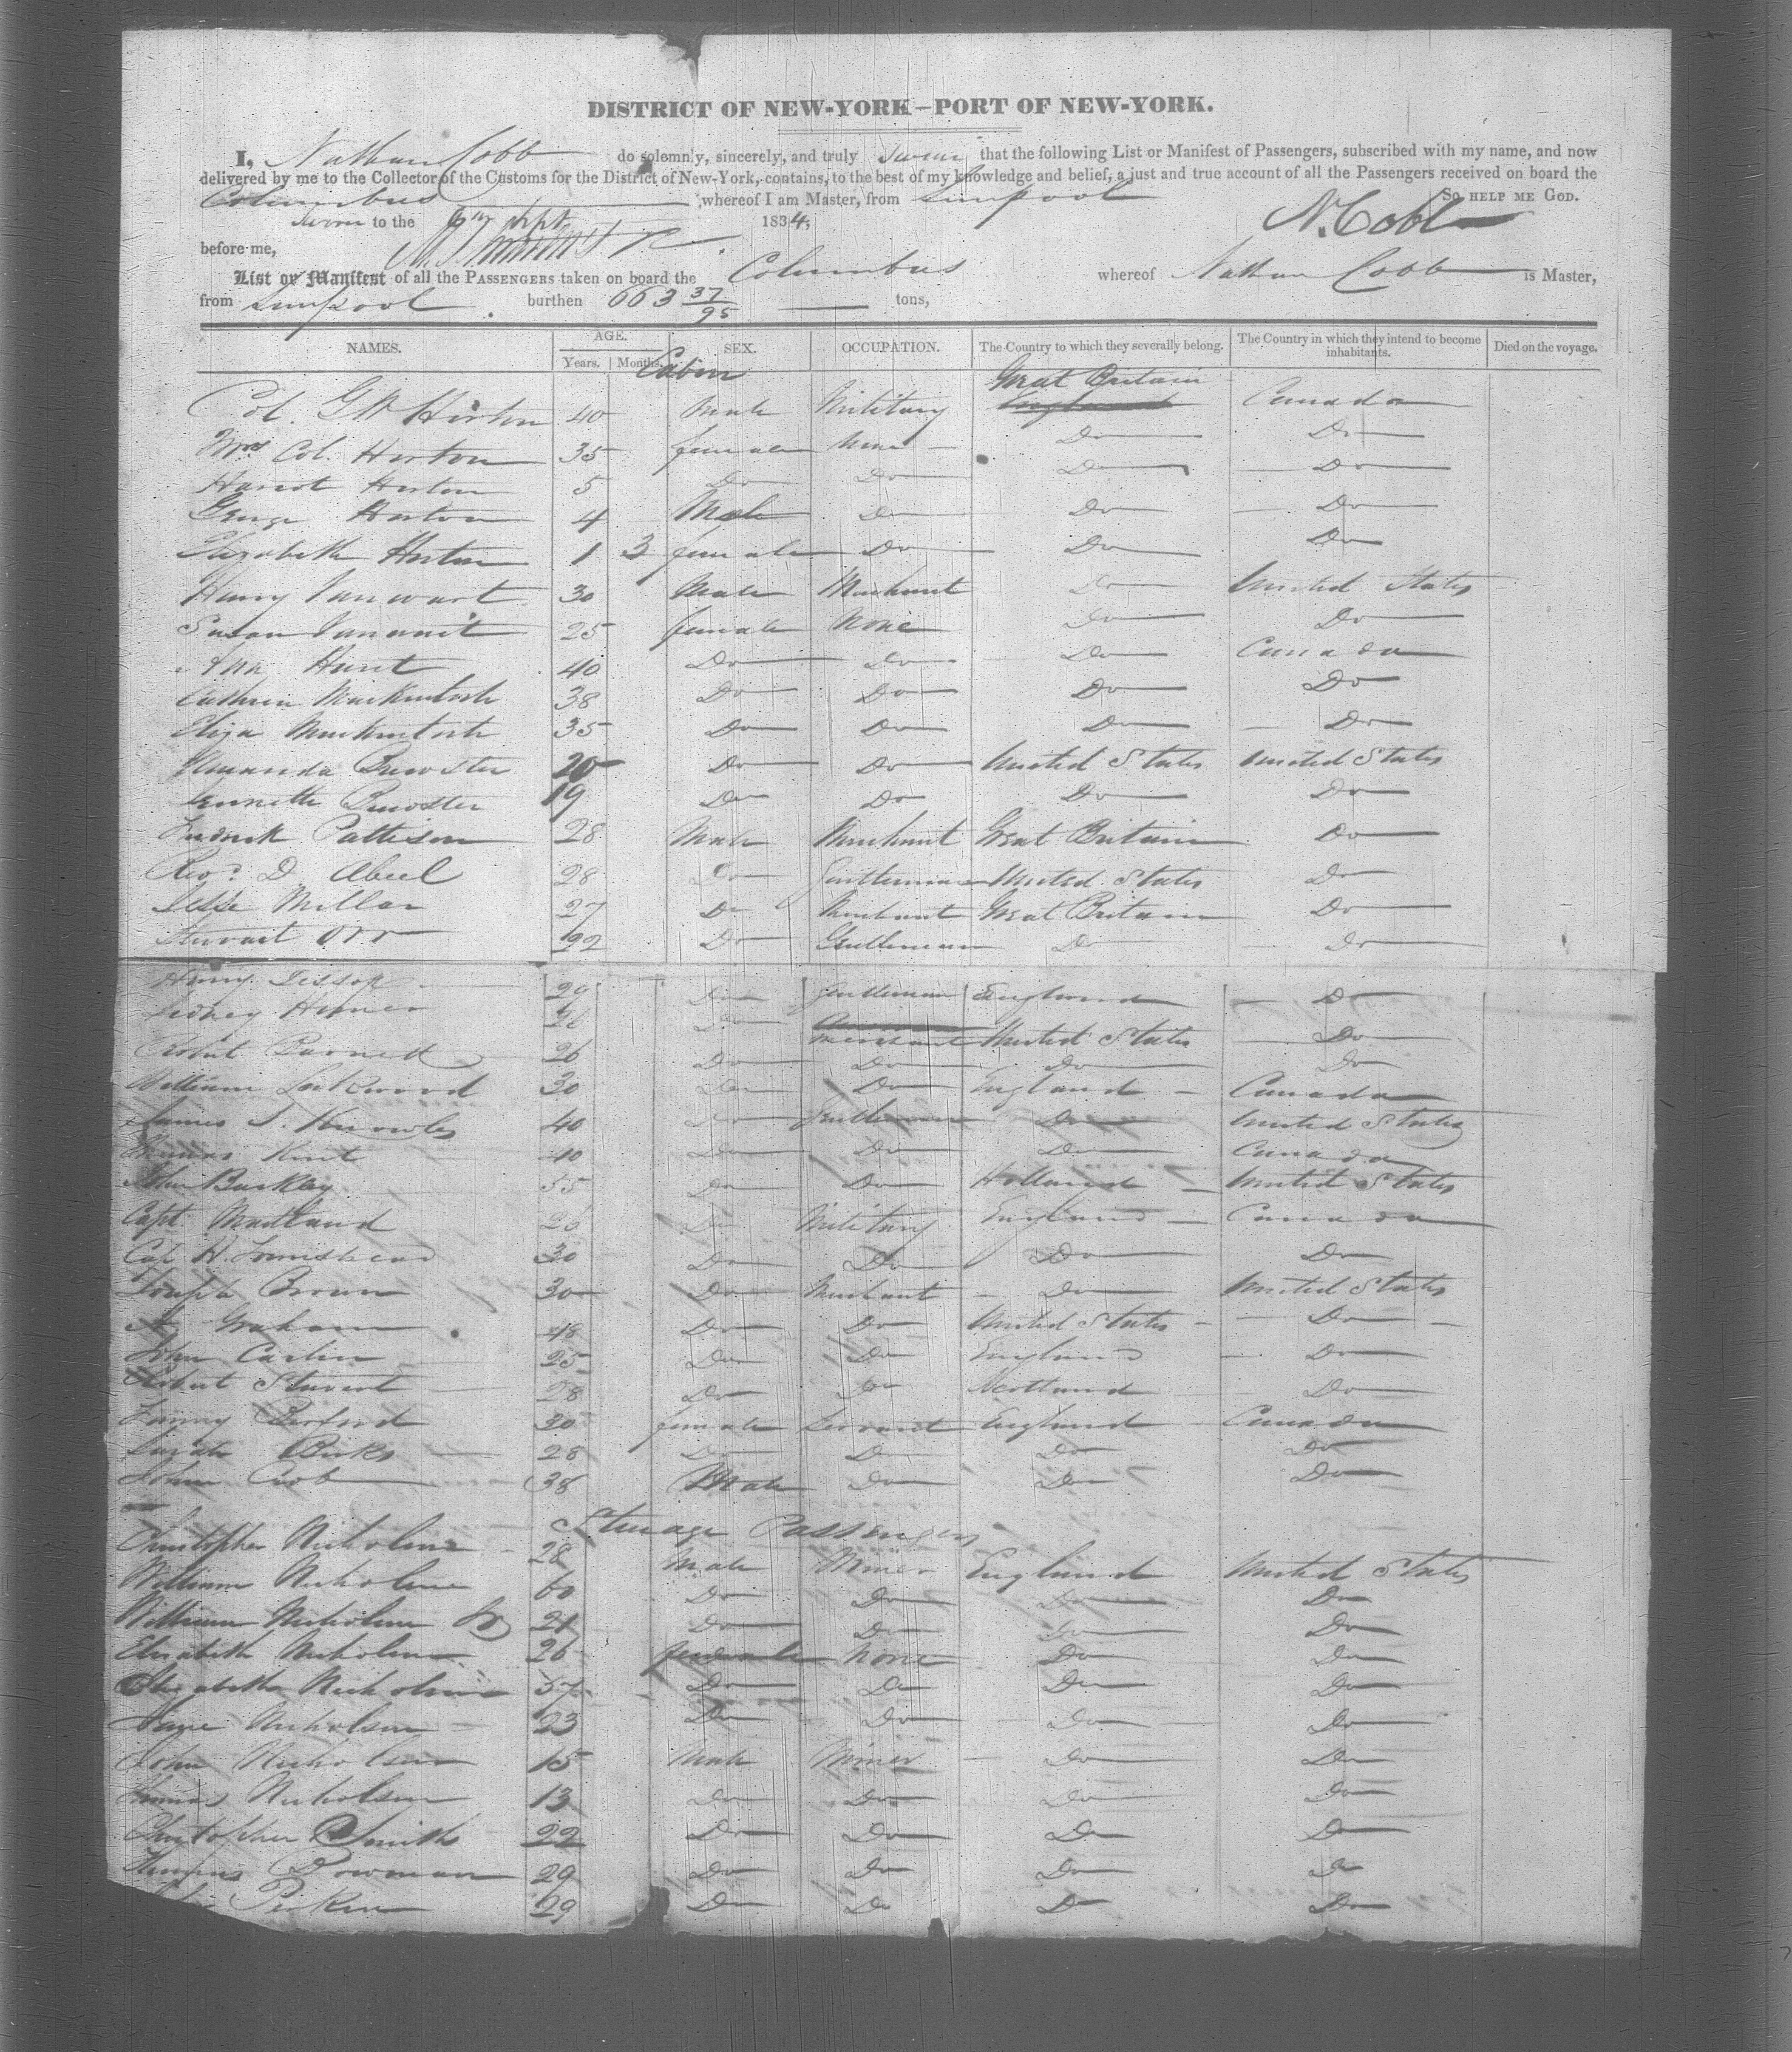 DISTRICT OF NEW-YORK—PORT OF NEW-YORK.
I, Nathan Cobb do solemnly, sincerely, and truly swear that the following List or Manifest of Passengers, subscribed with my name, and now
delivered by me to the Collector of the Customs for the District of New-York, contains, to the best of my knowledge and belief, a just and true account of all the Passengers received on board the
Columbus whereof I am Master, from Liverpool So HELP ME GOD.
Sworn to the Sept. 1834, N. Cobb
before me,
List or Manifest of all the PASSENGERS taken on board the Columbus whereof Nathan Cobb is Master,
from Liverpool burthen 663 37/95 tons,
NAMES. AGE. Years. Months. SEX. OCCUPATION. The Country to which they severally belong. The Country in which they intend to become inhabitants. Died on the voyage.
Cabin
Col. G W Horton 40 Male Military Great Britain England Canada
Mrs Col. Horton 35 female None Do Do
Harriot Horton 5 Do Do Do Do
George Horton 4 Male Do Do Do
Elizabeth Horton 1 3 female Do Do Do
Henry Vanwart 30 Male Merchant Do United States
Susan Vanwart 25 female None Do Do
Ann Hurst 40 Do Do Do Canada
Cathrin MacKintosh 38 Do Do Do Do
Eliza Mackintosh 35 Do Do Do Do
Amanda Brewster 20 Do Do United States United States
Brewster 19 Do Do Do Do
Fredrick Pattison 28 Male Merchant Great Britain Do
Revd. D Abeel 28 Do Gentleman United States Do
Jesse Millar 27 Do Merchant Great Britain Do
Stewart Orr 22 Do Gentleman Do Do
Henry Jessop 29 Do Gentleman England Do
Sidney 26 Do Merchant United States Do
Robert Barnett 26 Do Do Do Do
William Lockwood 30 Do Do England Canada
James S. Knowles 40 Do Gentleman Do United States
Thomas Kent 40 Do Do Do Canada
John Buckley 55 Do Do Holland United States
Capt. Maitland 26 Do Military England Canada
Cap H. Townshend 30 Do Do Do Do
Joseph Brown 30 Do Merchant Do United States
Graham 48 Do Do United States Do
John Carlin 25 Do Do England Do
Robert Stewart 28 Do Do Scotland Do
Fanny 30 female Servant England Canada
Birks 28 Do Do Do Do
John Crob 38 Male Do Do Do
Steerage Passengers
Christopher Nicholson 28 Male Miner England United States
William Nicholson 60 Do Do Do Do
William Nicholson Jr 21 Do Do Do Do
Elizabeth Nicholson 26 female None Do Do
Elizabeth Nicholson 57 Do Do Do Do
Jane Nicholson 23 Do Do Do Do
John Nicholson 15 Male Miner Do Do
Thomas Nicholson 13 Do Do Do Do
Christopher Smith 22 Do Do Do Do
Thomas Bowman 29 Do Do Do Do
29 Do Do Do Do